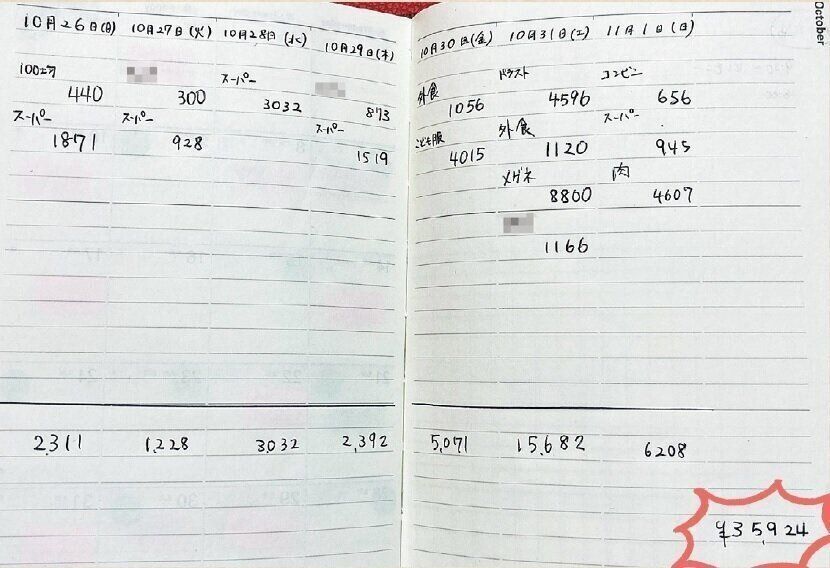 10月26日(月) 10月27日(火) 10月28日(水) 10月29日(木)
100エン
440 300
スーパー
3032
873
スーパー スーパー
1871 928
スーパー
1519
2,311 1,228 3,032 2,392
October
10月30日(金) 10月31日(土) 11月1日(日)
外食 ドラスト コンビニ
1056 4596 656
こども服 外食 スーパー
4015 1120 945
メガネ 肉
8800 4607
1166
5,071 15,682 6208
¥35,924